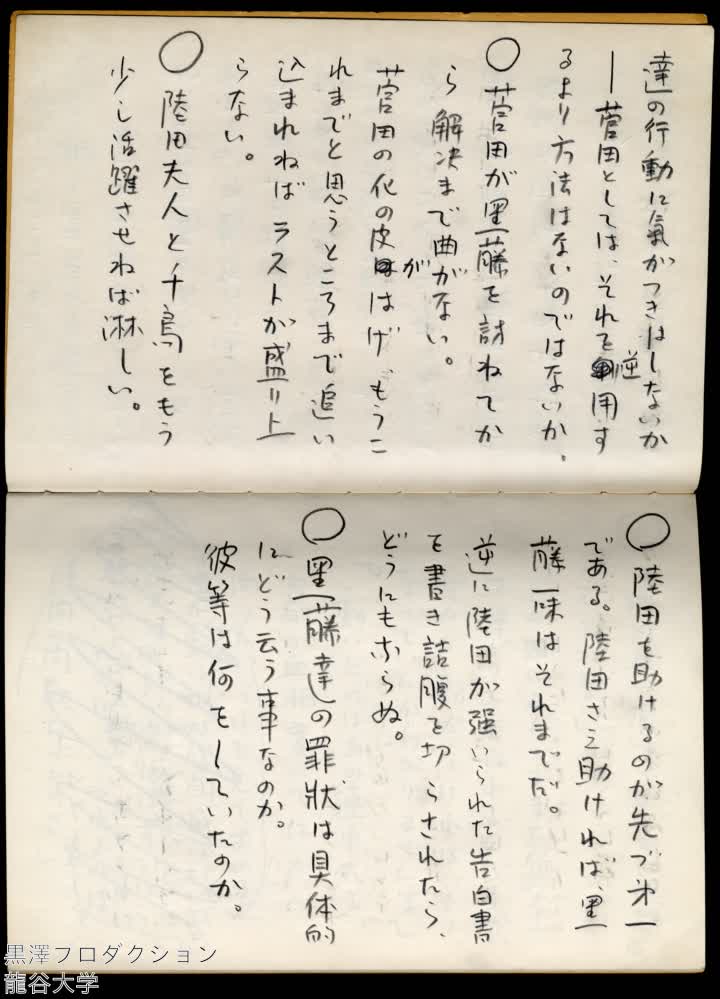 達の行動に氣がつきはしないか
ー菅田としては、それを逆用す
るより方法はないのではないか。
○菅田が黒藤を訪ねてか
ら解決まで曲がない。
菅田の化の皮がはげ、もうこ
れまでと思うところまで追い
込まれねばラストが盛り上
らない。
○陸田夫人と千鳥をもう
少し活躍させねば淋しい。
○陸田を助けるのが先づ才一
である。陸田さえ助ければ、黒
藤一味はそれまでだ。
逆に陸田が強いられた告白書
を書き詰腹を切らされたら、
どうにもあらぬ。
○黒藤達の罪狀は具体的
にどう云う事なのか。
彼等は何をしていたのか。
黒澤プロダクション
龍谷大学